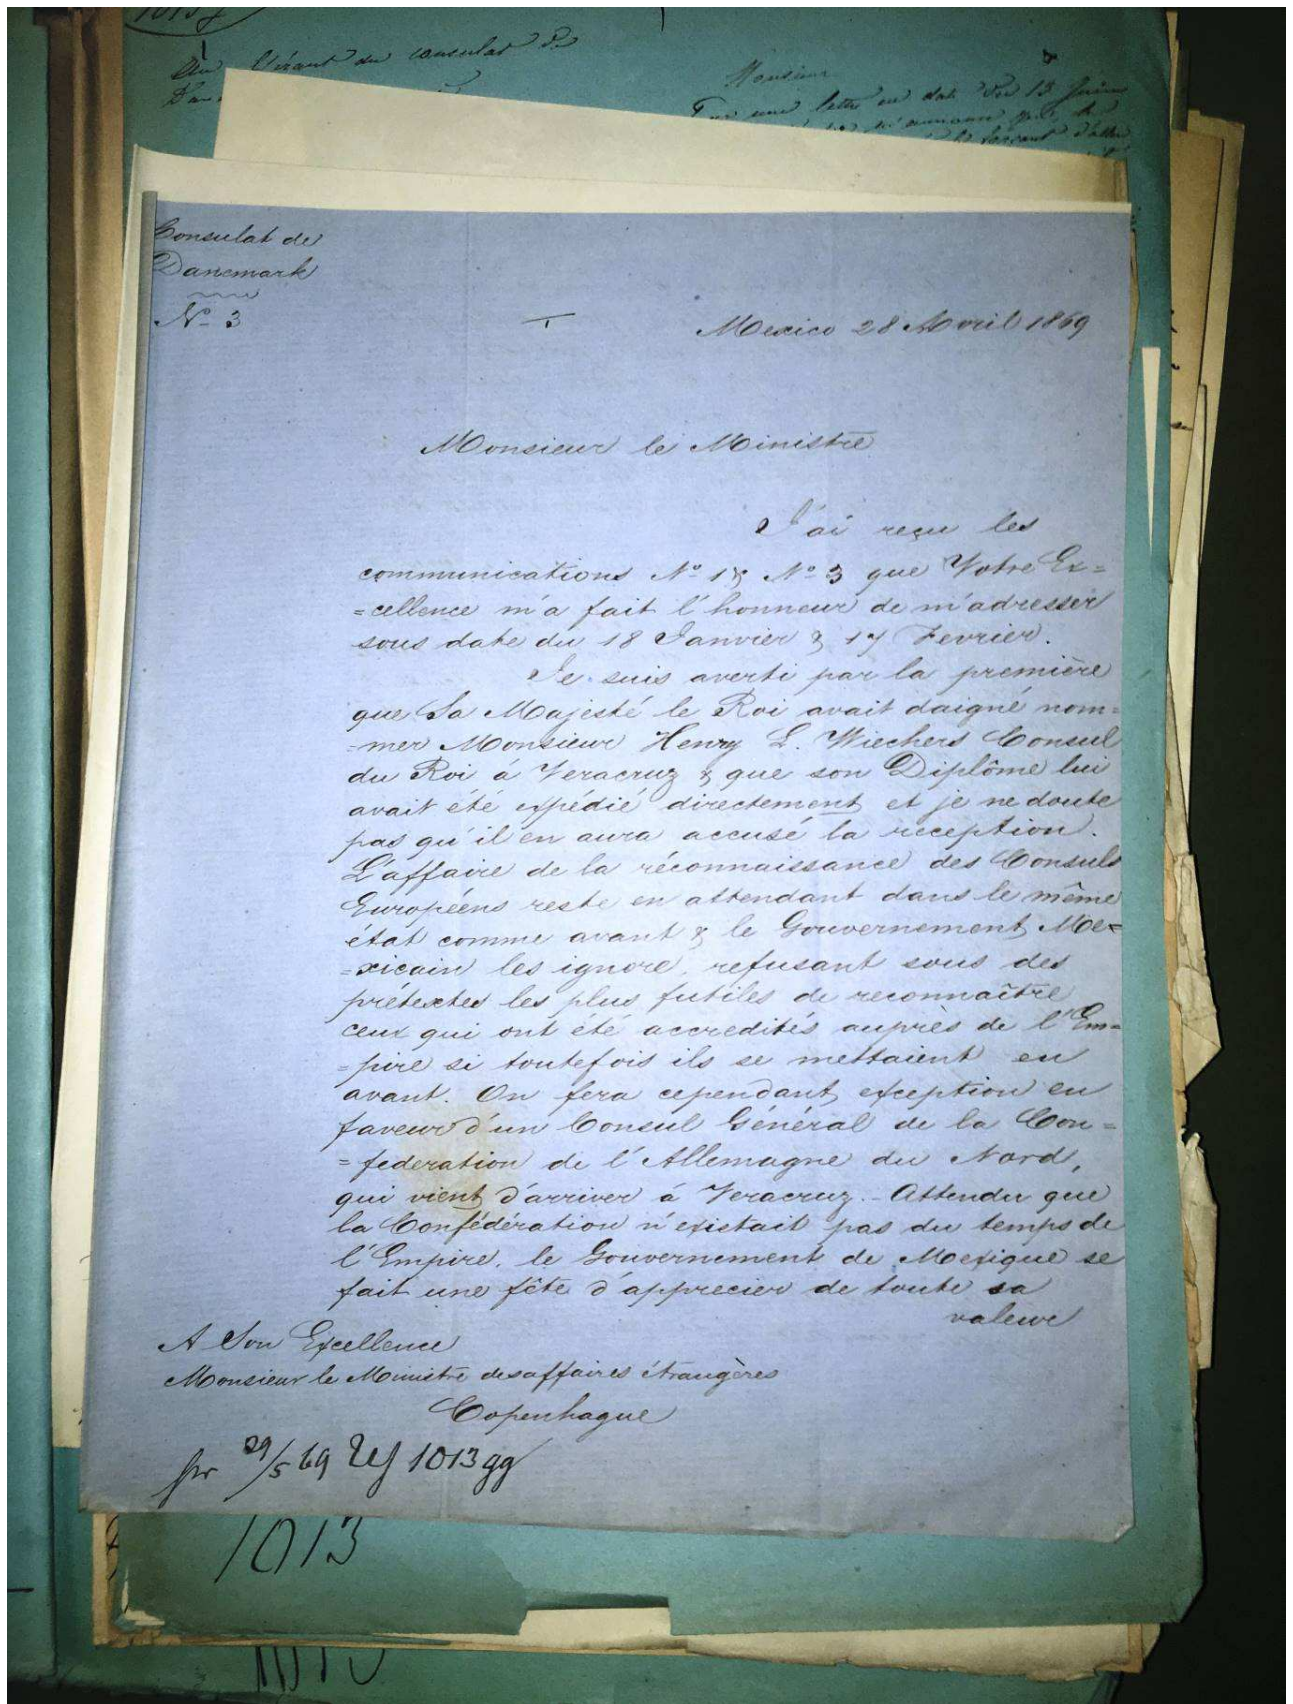 Au Gérant du consulat de
Monsieur
Par une lettre en date du 13 Juin
Consulat de
Danemark
No 3
Mexico 28 Avril 1869
Monsieur le Ministre
J'ai reçu les
communications No 1 & No 3 que Votre Ex=
=cellence m'a fait l'honneur de m'adresser
sous date du 18 Janvier & 17 Fevrier.
Je suis averti par la première
que Sa Majesté le Roi avait daigné nom=
=mer Monsieur Henry L. Wiechers Consul
du Roi à Veracruz & que son Diplôme lui
avait été expédié directement et je ne doute
pas qu'il en aura accusé la reception.
L'affaire de la réconnaissance des Consuls
Européens reste en attendant dans le même
état comme avant & le Gouvernement Me=
=xicain les ignore, refusant sous des
prétextes les plus futiles de reconnaître
ceux qui ont été accredités auprès de l'Em=
=pire si toutefois ils se mettaient en
avant. On fera cependant exception en
faveur d'un Consul Général de la Con=
=federation de l'Allemagne du Nord,
qui vient d'arriver à Veracruz. - Attendu que
la Confédération n'existait pas du temps de
l'Empire, le Gouvernement de Mexique se
fait une fête d'apprecier de toute sa
valeur
A Son Excellence
Monsieur le Ministre des affaires étrangères
Copenhague
pr 29/5 69 1013 gg
1013
1013